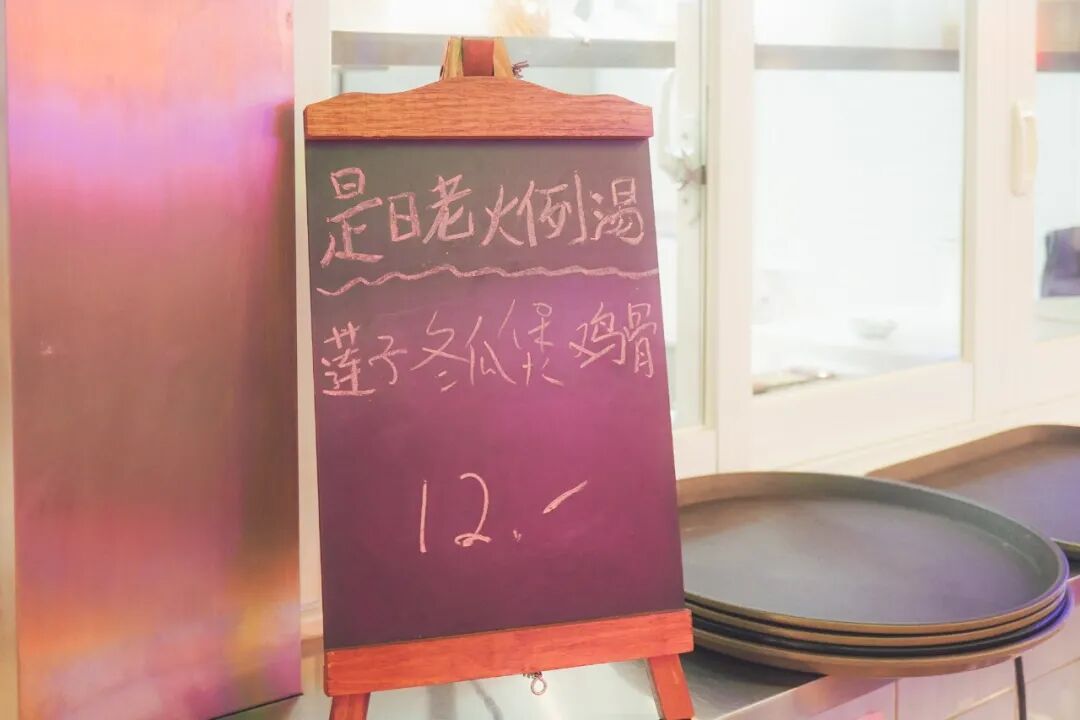 是日老火例湯
莲子冬瓜煲鸡骨
12.-